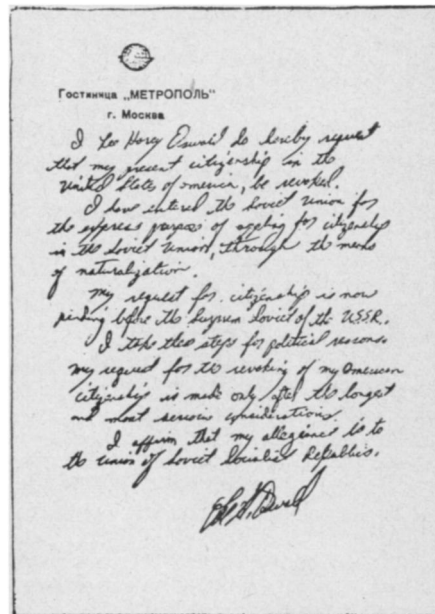 Гостиница „МЕТРОПОЛЬ"
г. Москва
I Lee Harey Oswald do hereby request
that my present citizenship in the
United States of america, be revoked.
I have entered the Soviet Union for
the express purpose of appling for citizenship
in the Soviet Union, through the means
of naturalization.
My request for citizenship is now
pending before the Suprem Soviet of the U.S.S.R.
I take these steps for political reasons.
My request for the revoking of my American
citizenship is made only after the longest
and most serious considerations.
I affirm that my allegiance is to
the Union of Soviet Socialist Republics.
Lee H. Oswald